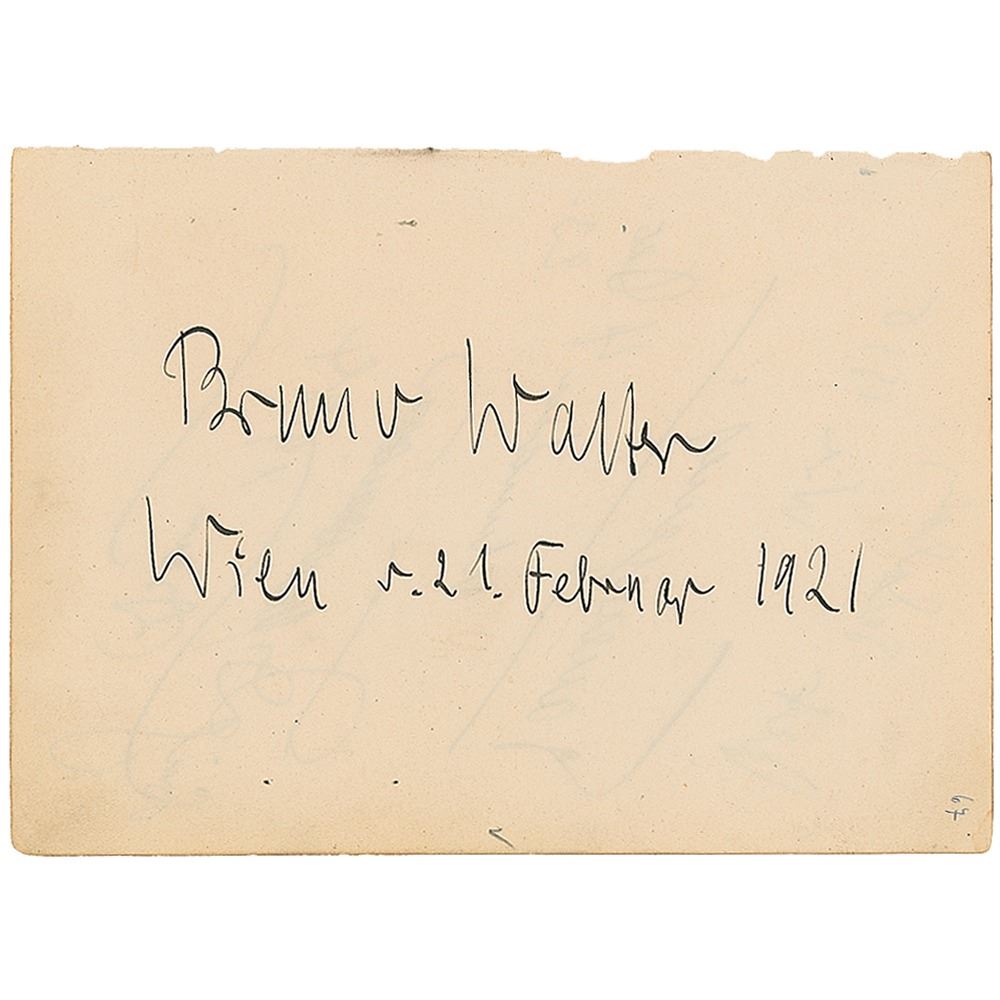 Bruno Walter
Wien d. 21. Februar 1921